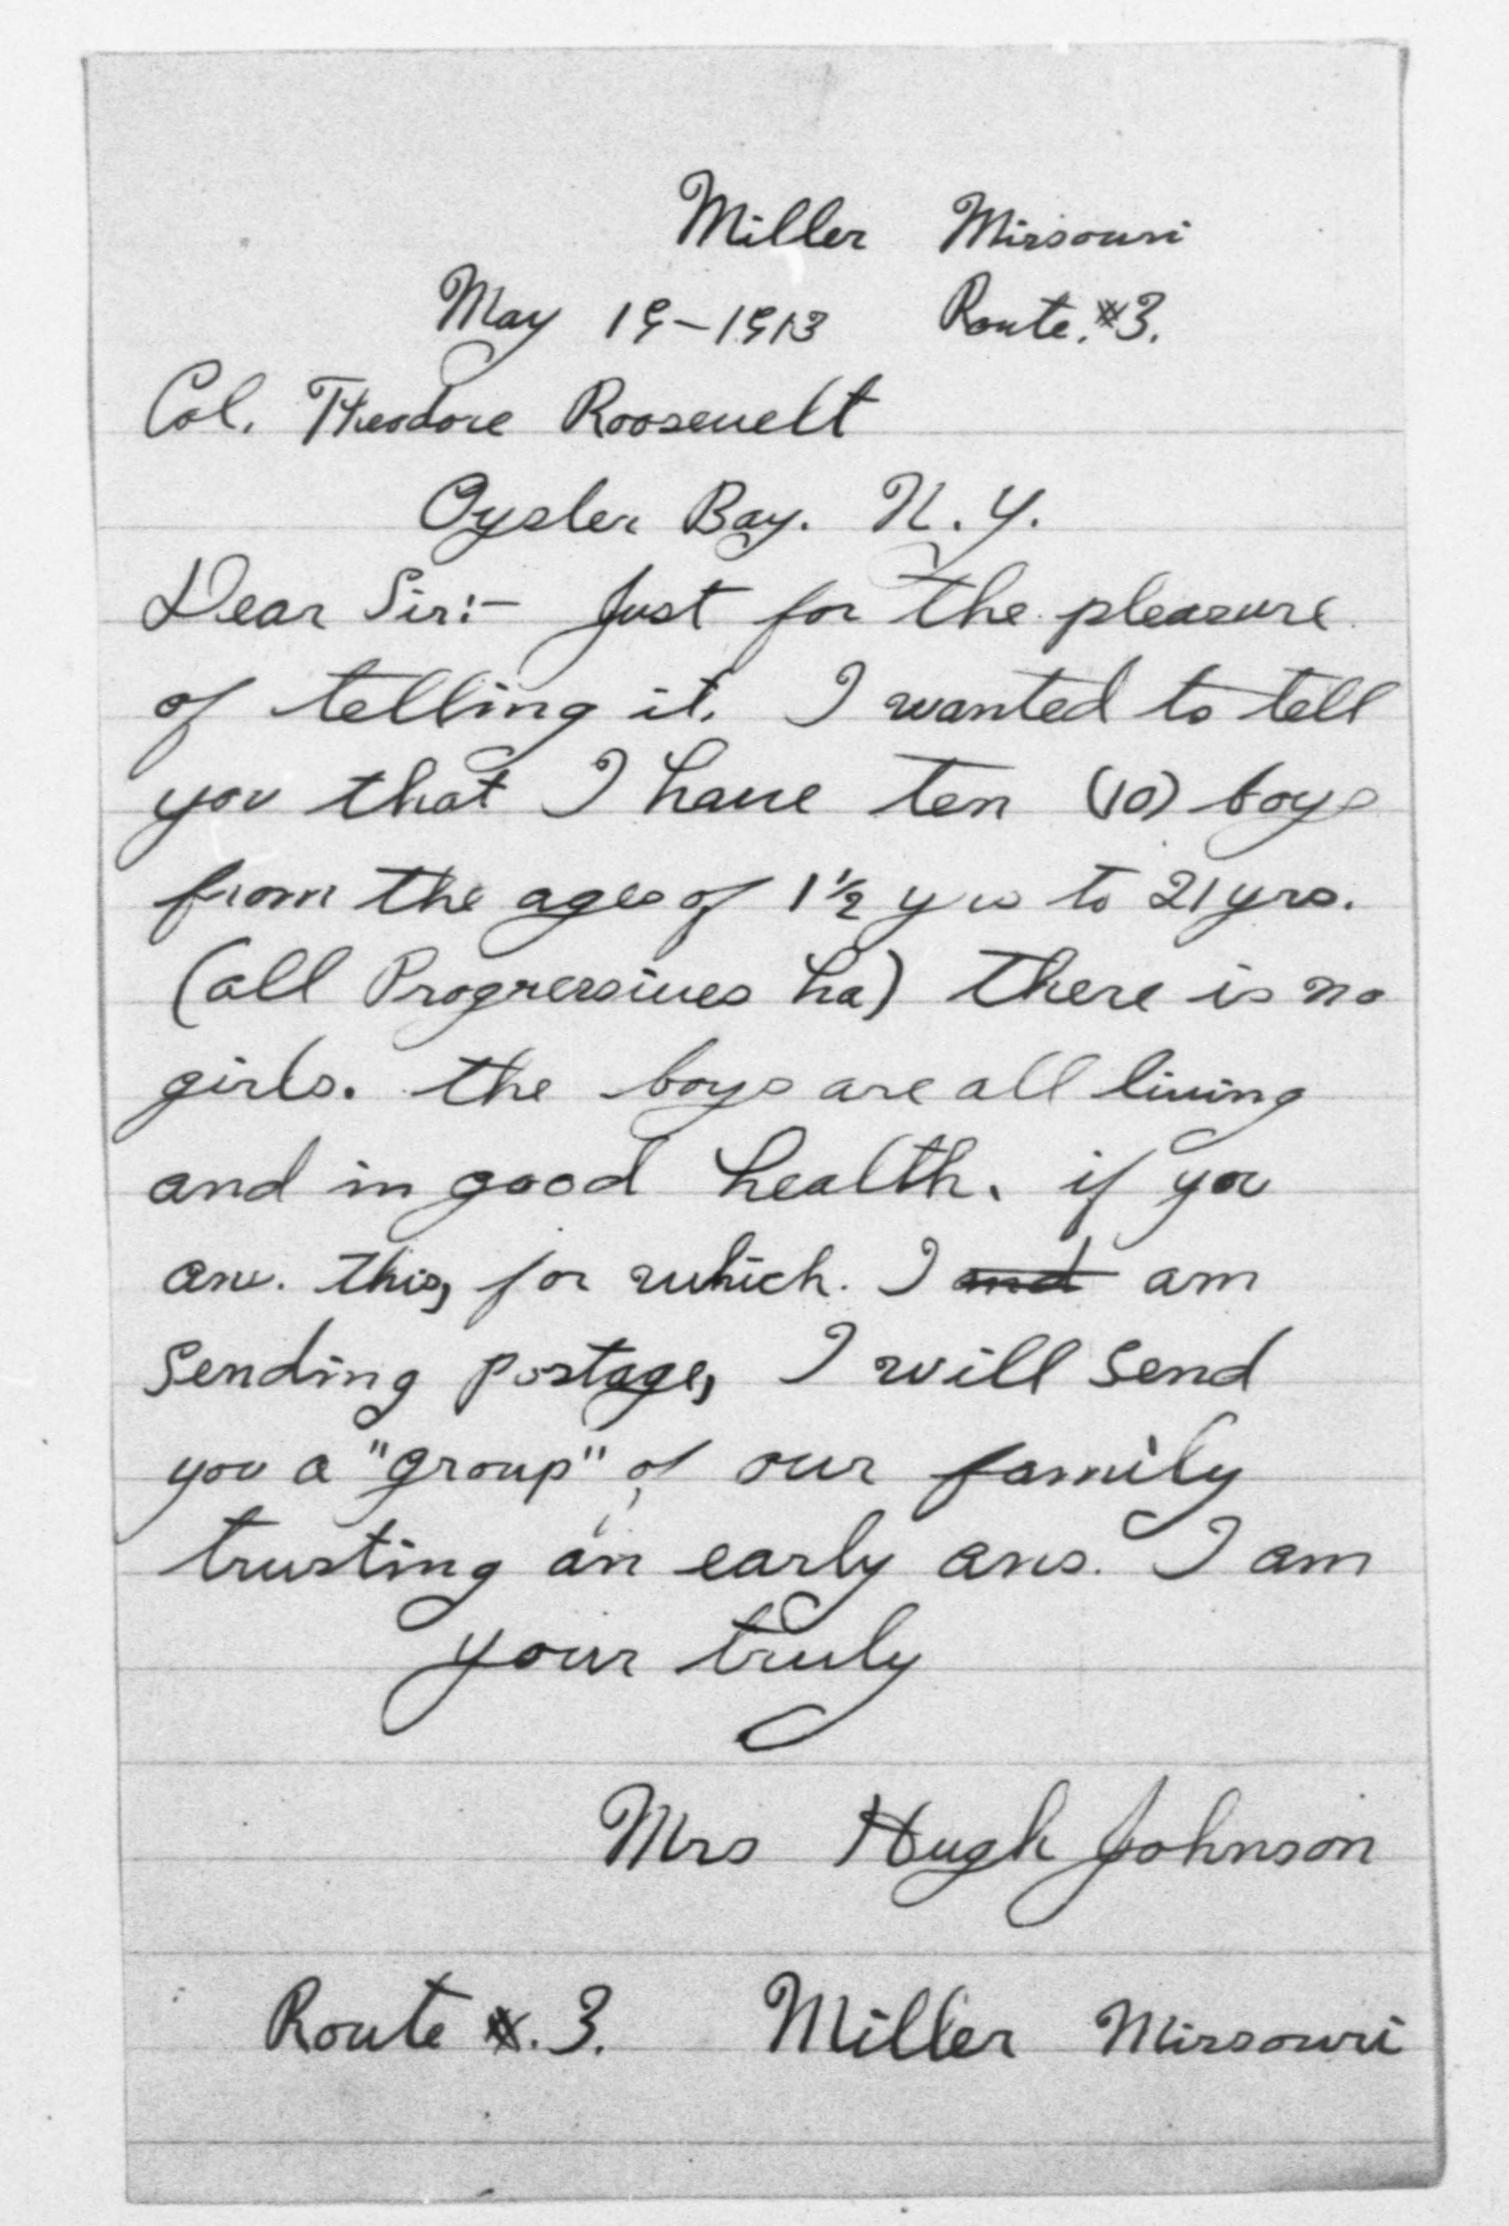 Miller Missouri
May 19-1913 Route. #3.
Col. Theodore Roosevelt
Oyster Bay. N.Y.
Dear Sir:- Just for the pleasure
of telling it. I wanted to tell
you that I have ten (10) boys
from the ages of 1½ yrs to 21 yrs.
(all Progressives ha) there is no
girls. the boys are all living
and in good health. if you
ans. this, for which. I and am
sending postage, I will send
you a "group" of our family
trusting an early ans. I am
your truly
Mrs Hugh Johnson
Route #. 3. Miller Missouri